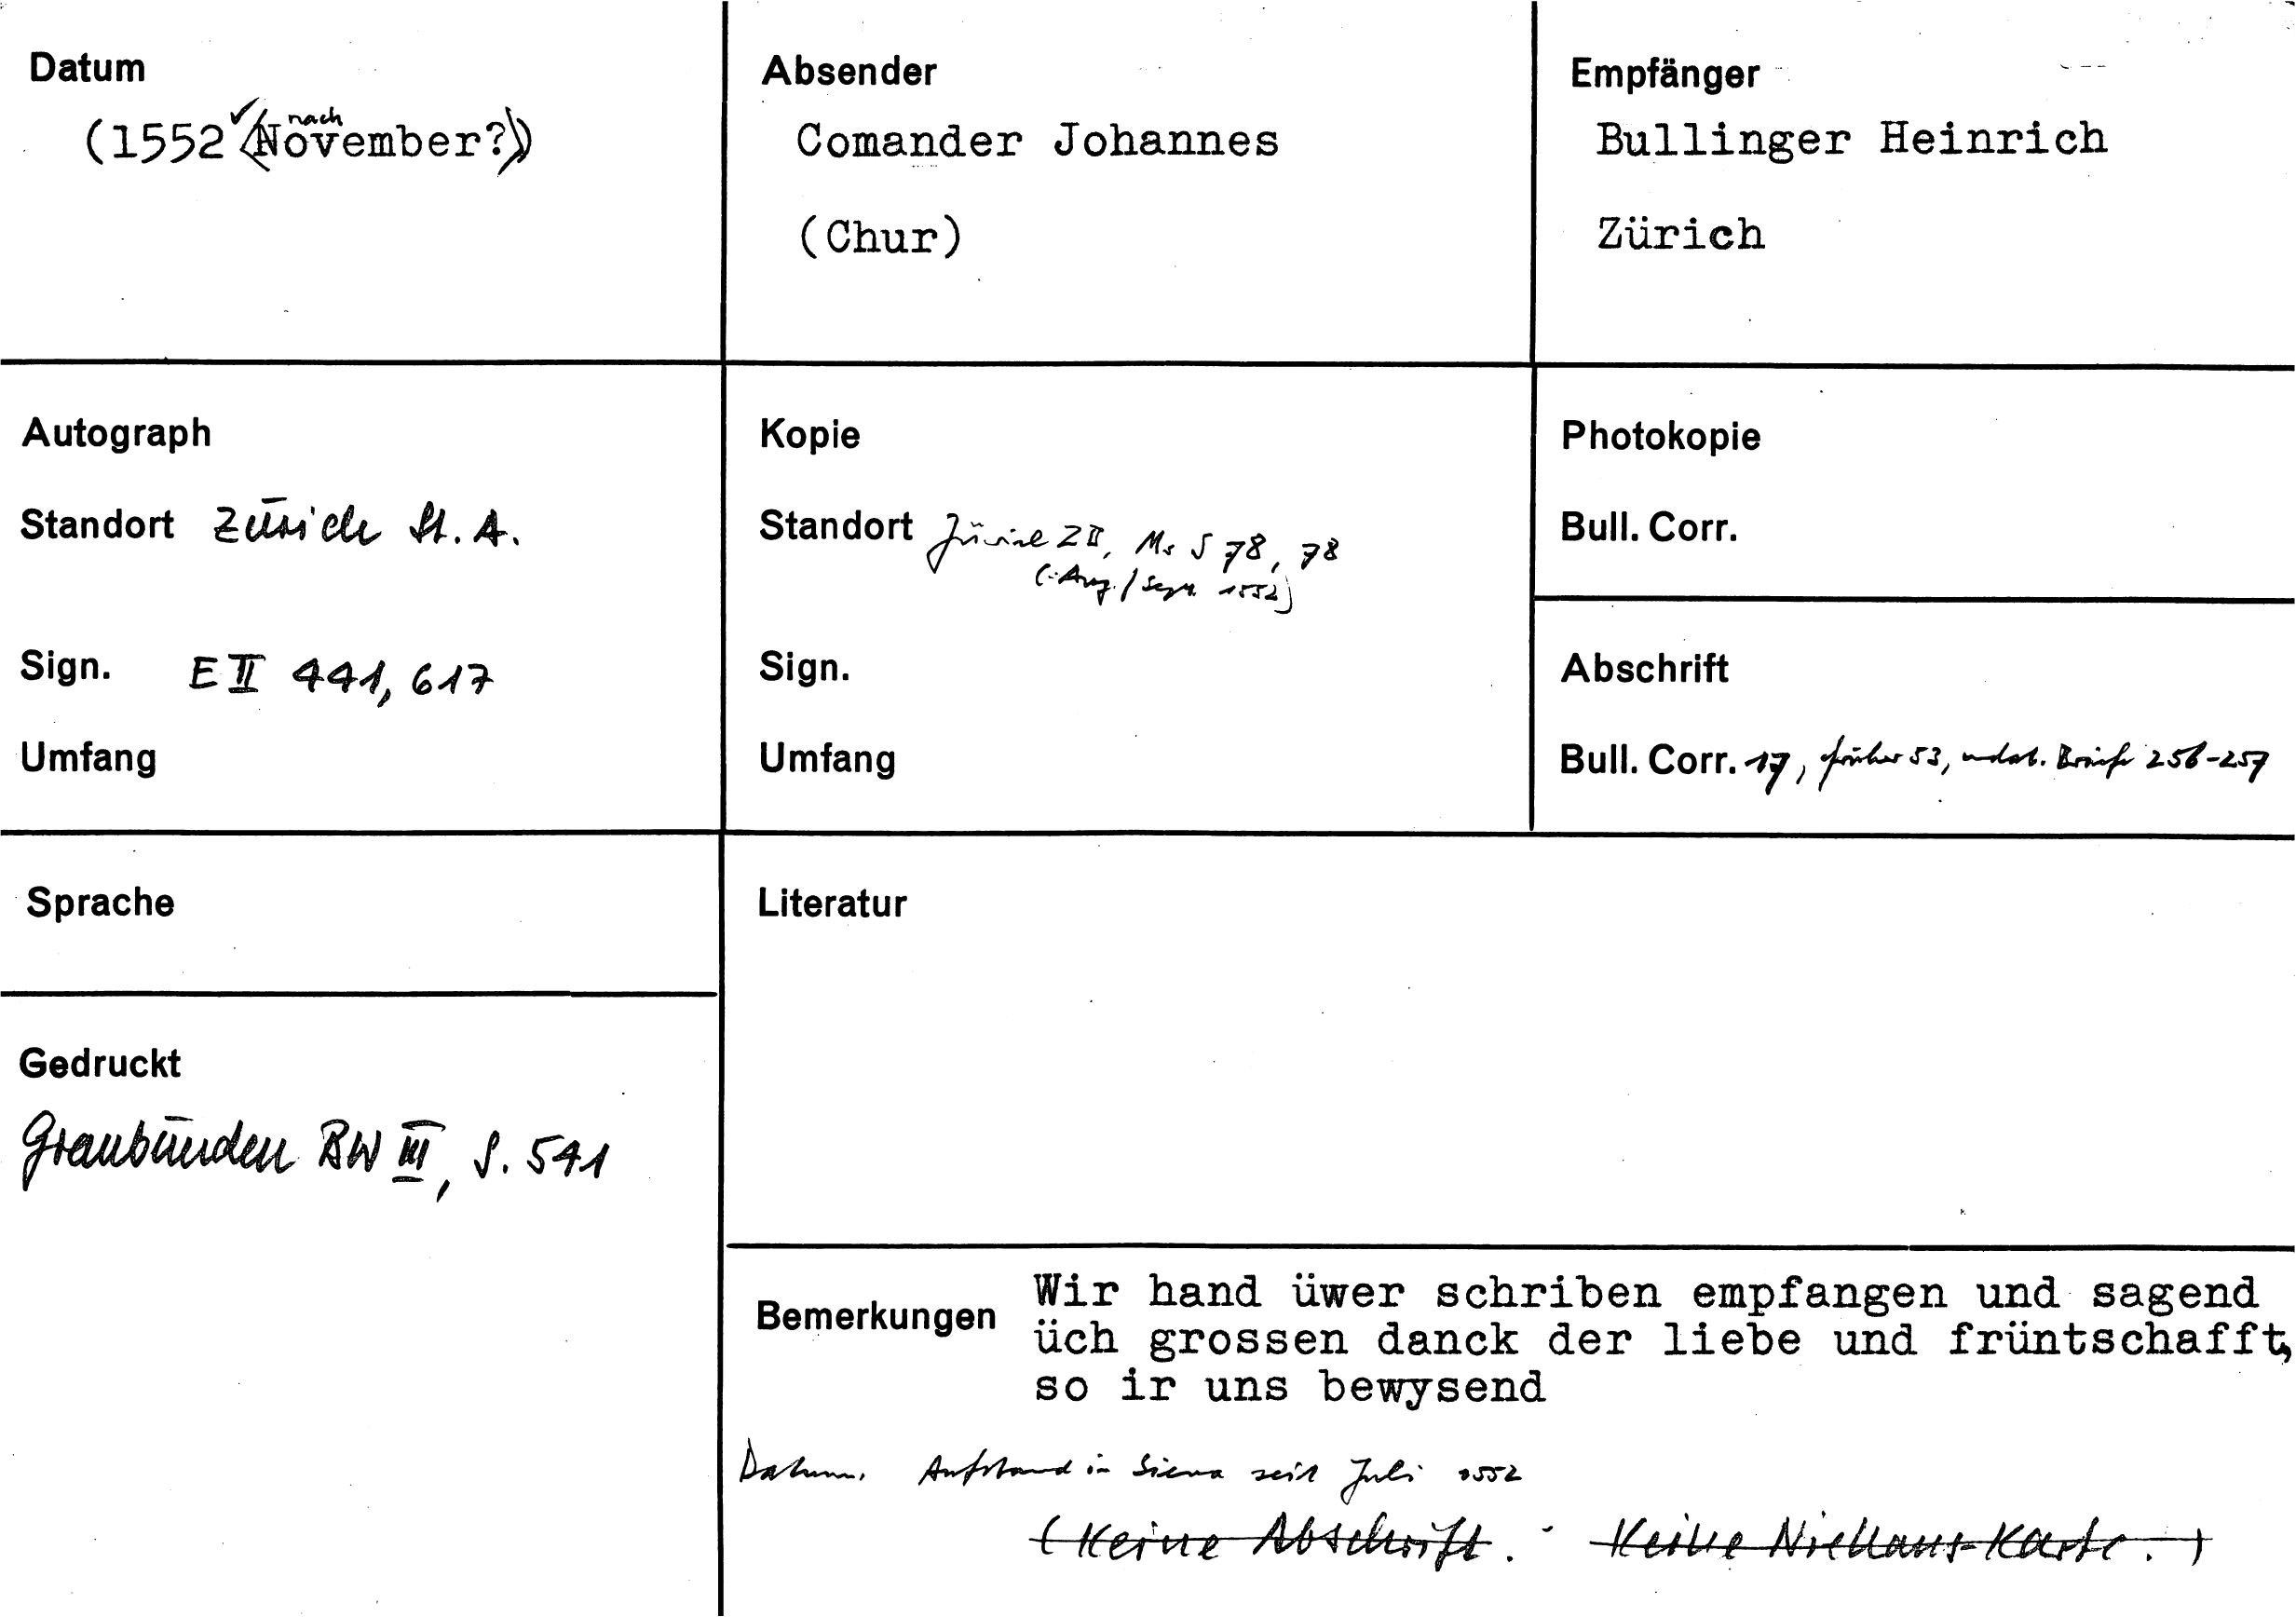 Datum
(1552 ✓ <nach November?>)
Absender
Comander Johannes
(Chur)
Empfänger
Bullinger Heinrich
Zürich
Autograph
Standort Zürich St. A.
Sign. E II 441, 617
Umfang
Kopie
Standort Zürich ZB, Ms S 78, 78
(: Aug. / Sept. 1552)
Sign.
Umfang
Photokopie
Bull. Corr.
Abschrift
Bull. Corr. 17, früher 53, undat. Briefe 256-257
Sprache
Gedruckt
Graubünden BW III, S. 541
Literatur
Bemerkungen
Wir hand üwer schriben empfangen und sagend
üch grossen danck der liebe und früntschafft,
so ir uns bewysend
Datum. Aufstand in Siena seit Juli 1552
(Keine Abschrift. - Keine Niehans-Karte.)